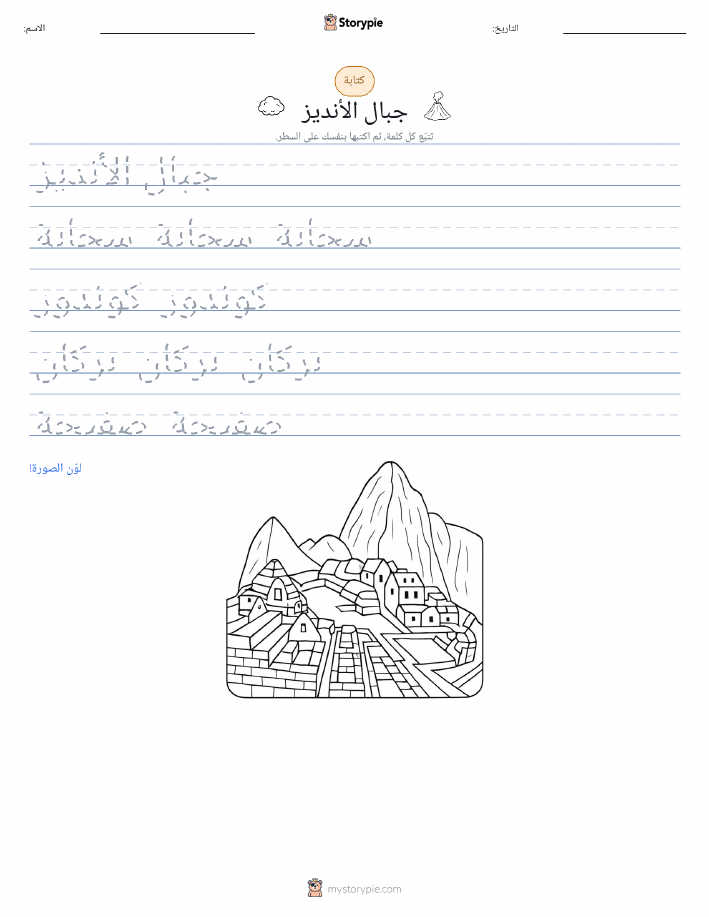 Storypie
الاسم:
التاريخ:
كتابة
جبال الأنديز
تتبّع كل كلمة، ثم اكتبها بنفسك على السطر.
جبال الأنديز
سحابة سحابة سحابة
كوندور كوندور
بركان بركان بركان
صفيحة صفيحة
لوّن الصورة!
mystorypie.com